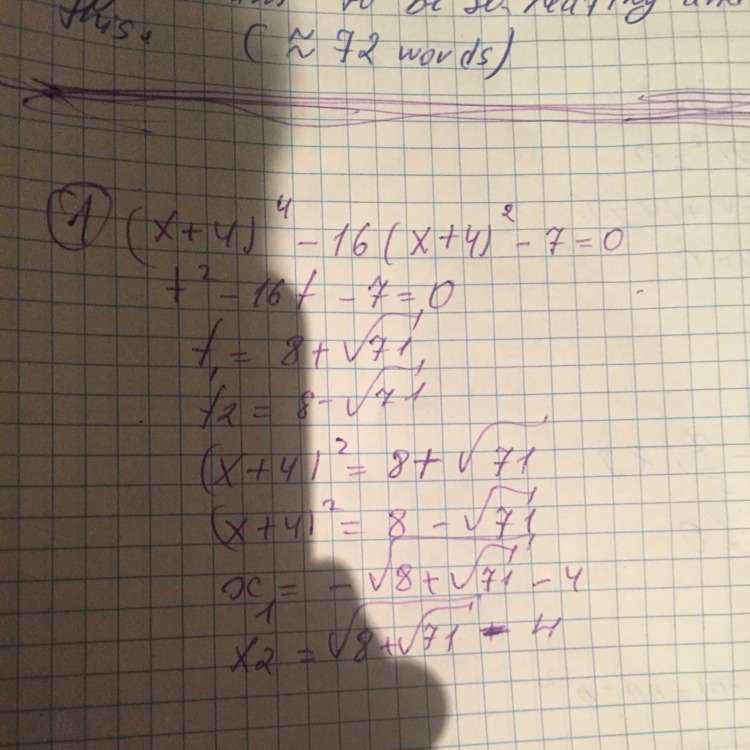 to be
this. (≈ 72 words)
1 (x+4)⁴ - 16(x+4)² - 7 = 0
t² - 16t - 7 = 0
t₁ = 8 + √71
t2 = 8 - √71
(x+4)² = 8 + √71
(x+4)² = 8 - √71
x₁ = -√(8+√71) - 4
x2 = √(8+√71) - 4